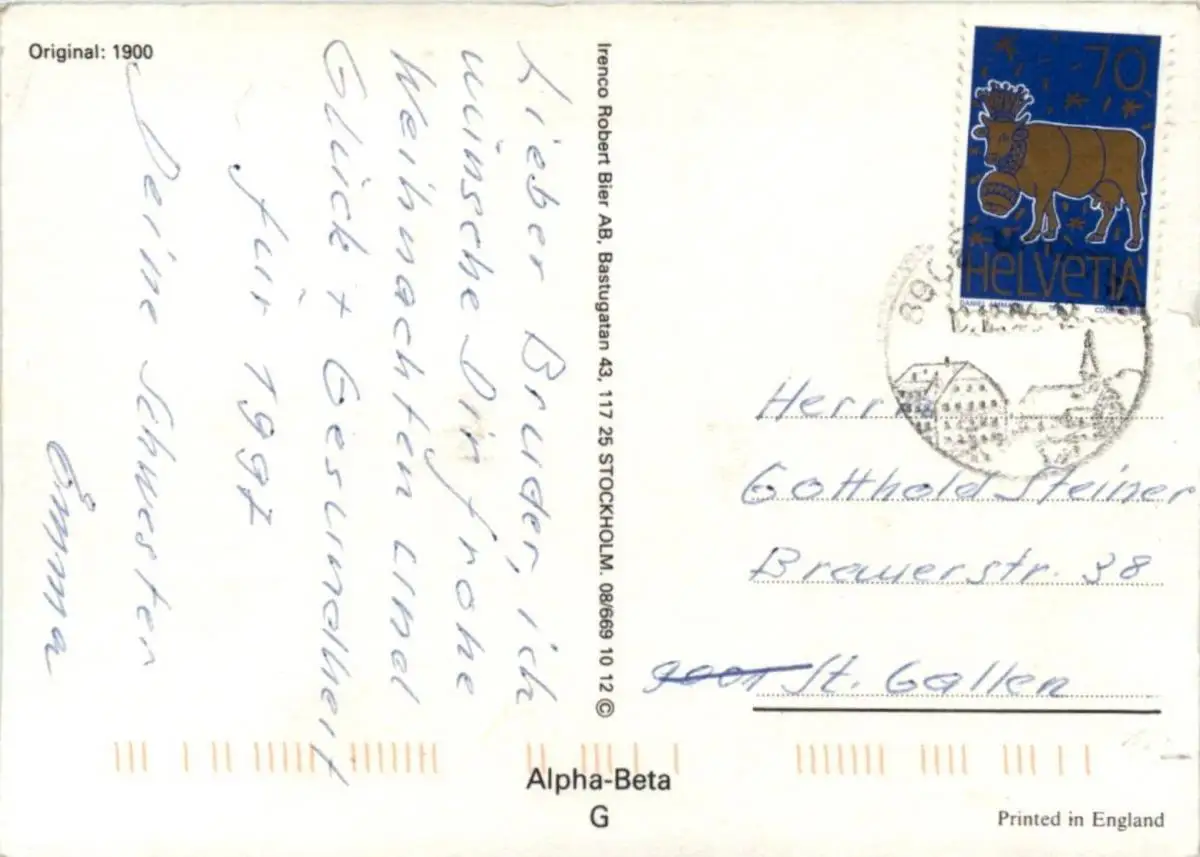 Original: 1900
Lieber Bruder, ich
wünsche Dir frohe
Weihnachten und
Glück + Gesundheit
für 1997
Deine Schwester
Emma
Irenco Robert Bier AB, Bastugatan 43, 117 25 STOCKHOLM. 08/669 10 12 ©
70
HELVETIA
Herrn
Gotthold Steiner
Brauerstr. 38
9001 St. Gallen
Alpha-Beta
G
Printed in England